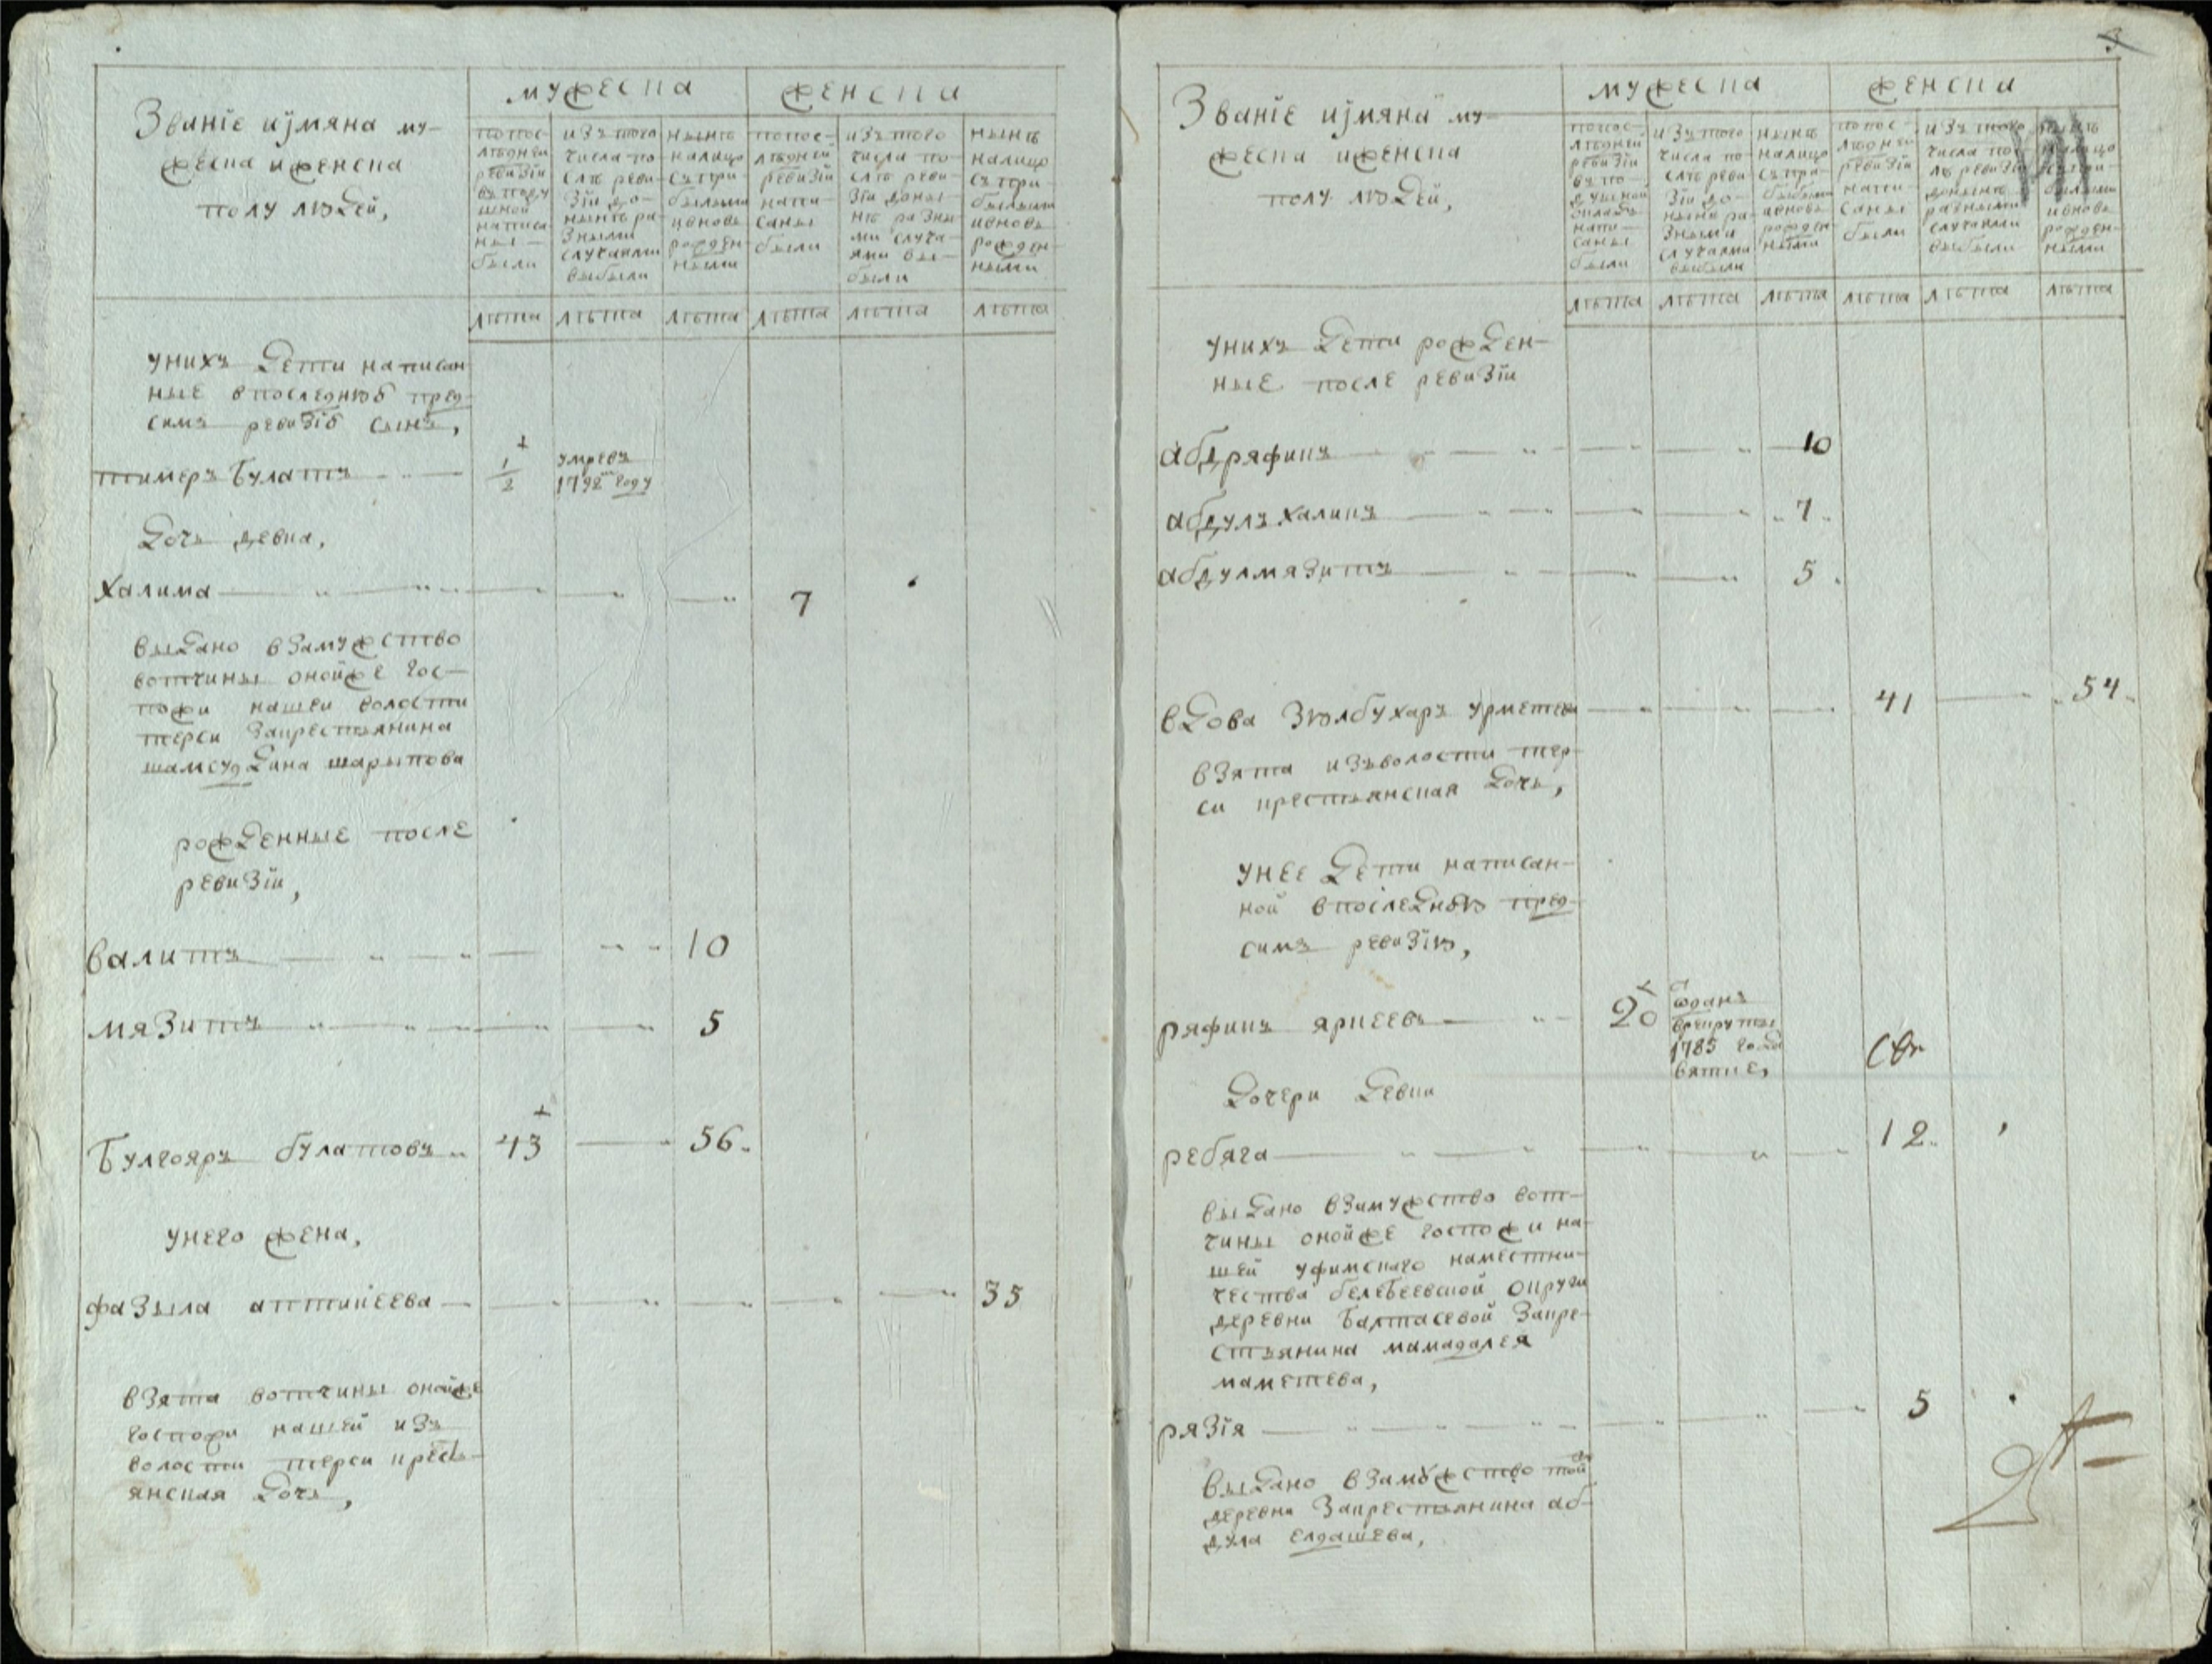 Званїе иjмяна му-
жеска иженска
полу людей,
мужеска
женска
попос-
лѣдней
ревизїи
вѣподу
шной
написа
ны
были
изътого
числа по-
слѣ реви-
зїи до-
нынѣ ра-
зными
случаями
выбыли
нынѣ
налицо
съпри-
былыми
ивновь
рожден-
ными
попос-
лѣдней
ревизїи
напи-
саны
были
изътого
числа по-
слѣ реви-
зїи доны-
нѣ разны-
ми случа-
ями вы-
были
нынѣ
налицо
съпри-
былыми
ивновь
рожден-
ными
лѣта лѣта лѣта лѣта лѣта лѣта
унихъ дети написан
ные впоследнюю пред
симъ ревизїю сынъ,
тимеръ булатъ 1/2 умревъ
1792 году
дочь девка,
халима 7
выдано взамужство
вотчины онойже гос-
пожи нашеи волости
терси закрестьянина
шамсуддина шарыпова
рожденные после
ревизїи,
валитъ 10
мязитъ 5
булгояръ булатовъ 43 56
унего жена,
фазыла аптикеева 35
взята вотчины онойже
госпожи нашей изъ
волости терси кресть-
янская дочь,
3
Званїе иjмяна му-
жеска иженска
полу людей,
мужеска
женска
попос-
лѣдней
ревизїи
вѣпо-
душной
окладъ
напи-
саны
были
изътого
числа по-
слѣ реви
зїи до-
нынѣ ра-
зными
случаями
выбыли
нынѣ
налицо
съпри-
былыми
ивновь
рожден-
ными
попос-
лѣдней
ревизїи
напи-
саны
были
изътого
числа пос
лѣ ревизїи
донынѣ
разными
случаями
выбыли
нынѣ
налицо
съпри-
былыми
ивновь
рожден-
ными
лѣта лѣта лѣта лѣта лѣта лѣта
унихъ дети рожден-
ные после ревизїи
абдряфикъ 10
абдулъ халикъ 7
абдулмязитъ 5
вдова зюлбухаръ урметева 41 54
взята изъволости тер-
си крестьянская дочь,
унее дети написан-
ной впоследнюю пред-
симъ ревизїю,
ряфикъ яркеевъ 20 ѿданъ
врекруты
1785 года
вятке,
дочери девки
ребяга 12
выдано взамужство вот-
чины онойже госпожи на-
шей уфимскаго наместни-
чества белебеевской округи
деревни балтасевой закре-
стьянина мамадалея
маметева,
рязїя 5
выдано взамужство той
деревни закрестьянина аб-
дула елдашева,